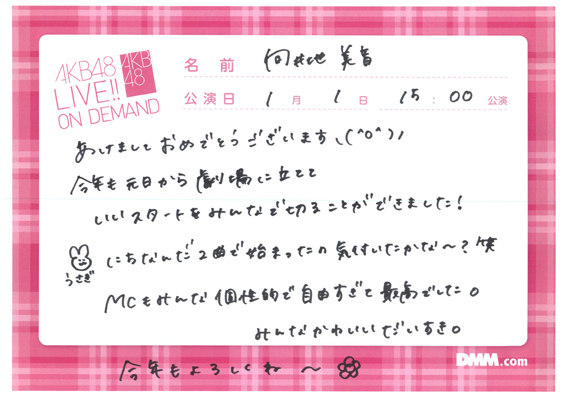 AKB48
LIVE!!
ON DEMAND
AKB
48
名前 向井地 美音
公演日 1月 1日 15:00 公演
あけまして おめでとうございます\(^o^)/
今年も元日から劇場に立てて
いいスタートをみんなで切ることができました!
うさぎ
にちなんだ2曲で始まったの気付いたかな〜?笑
MCもみんな個性的で自由すぎて最高でした。
みんなかわいいだいすき。
今年もよろしくね〜
DMM.com